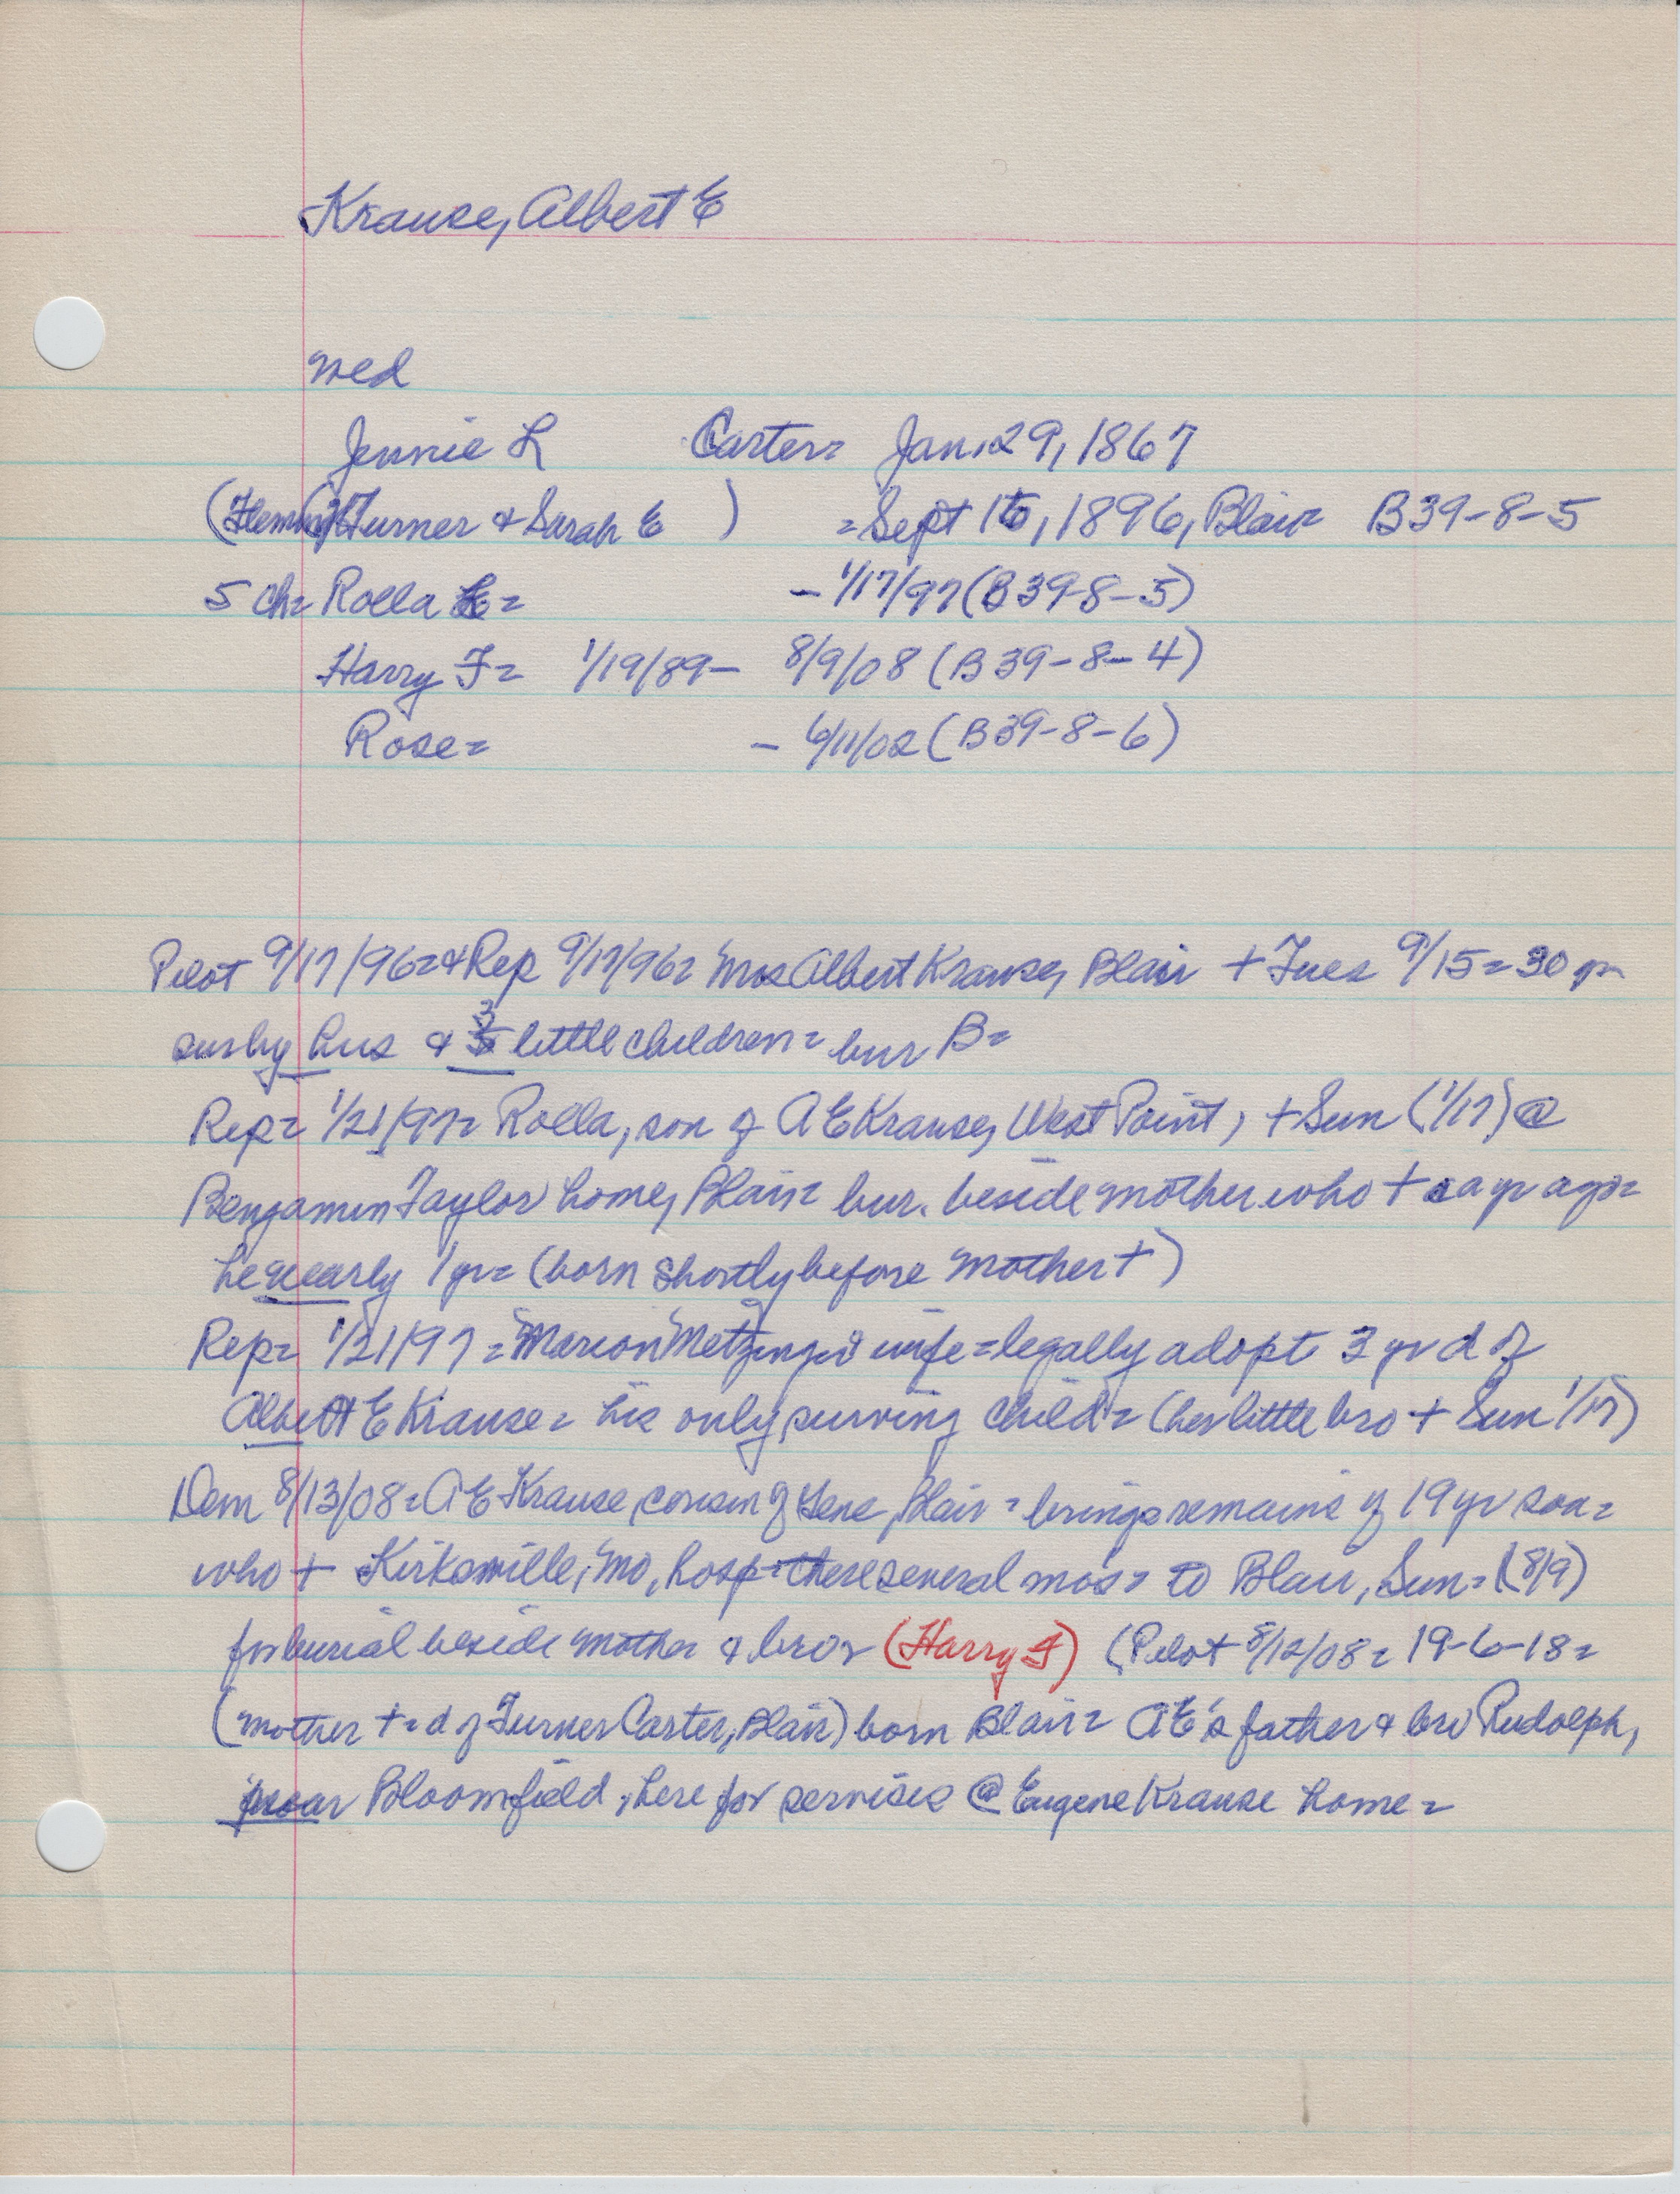 Krause, Albert E
wed
Jennie L Carter= Jan. 29, 1867
(Fleming Turner & Sarah E ) = Sept 15, 1896, Blair= B39-8-5
5 ch= Rolla E= - 1/17/97 (B39-8-5)
Harry F= 1/19/89- 8/9/08 (B39-8-4)
Rose= - 6/11/02 (B39-8-6)
Pilot 9/17/96= & Rep 9/17/96= Mrs Albert Krause, Blair + Tues 9/15= 30 yr
sur by hus & 3 little children= bur B=
Rep= 1/21/97= Rolla, son of A E Krause, West Point, + Sun (1/17) @
Benjamin Taylor home, Blair= bur. beside mother who + a yr ago=
he nearly 1 yr= (born shortly before mother +)
Rep= 1/21/97= Marion Metzinger & wife= legally adopt 3 yr d of
Albert E Krause= his only surving child= (her little bro + Sun 1/17)
Dem 8/13/08= A E Krause, cousin of Gene, Blair= brings remains of 19 yr son=
who + Kirksville, Mo, hosp= there several mos= to Blair, Sun= (8/9)
for burial beside mother & bro= (Harry F) (Pilot 8/12/08= 19-6-18=
(mother += d of Turner Carter, Blair) born Blair= AE's father & bro Rudolph,
near Bloomfield, here for services @ Eugene Krause home=